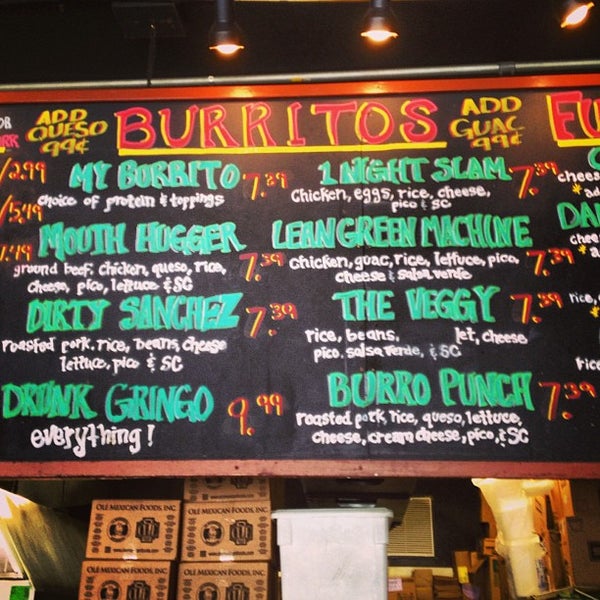 ADD
QUESO
99¢
BURRITOS
ADD
GUAC
99¢
MY BURRITO 7.39
choice of protein & toppings
MOUTH HUGGER 7.39
ground beef, chicken, queso, rice,
cheese, pico, lettuce & SC
DIRTY SANCHEZ 7.39
roasted pork, rice, beans, cheese
lettuce, pico & SC
DRUNK GRINGO 9.99
everything!
1 NIGHT SLAM 7.39
Chicken, eggs, rice, cheese,
pico & SC
LEAN GREEN MACHINE 7.39
chicken, guac, rice, lettuce, pico,
cheese & salsa verde
THE VEGGY 7.39
rice, beans, let, cheese
pico, salsa verde, & SC
BURRO PUNCH 7.39
roasted pork, rice, queso, lettuce,
cheese, cream cheese, pico, & SC
/2.99
/5.49
FU
chees
DA
chee
rice,
OLE MEXICAN FOODS, INC
OLE MEXICAN FOODS, INC
OLE MEXICAN FOODS, INC
OLE MEXICAN FOODS, INC